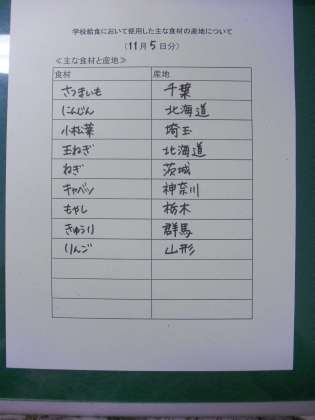 学校給食において使用した主な食材の産地について
(11月5日分)
≪主な食材と産地≫
食材 産地
さつまいも 千葉
にんじん 北海道
小松菜 埼玉
玉ねぎ 北海道
ねぎ 茨城
キャベツ 神奈川
もやし 栃木
きゅうり 群馬
りんご 山形